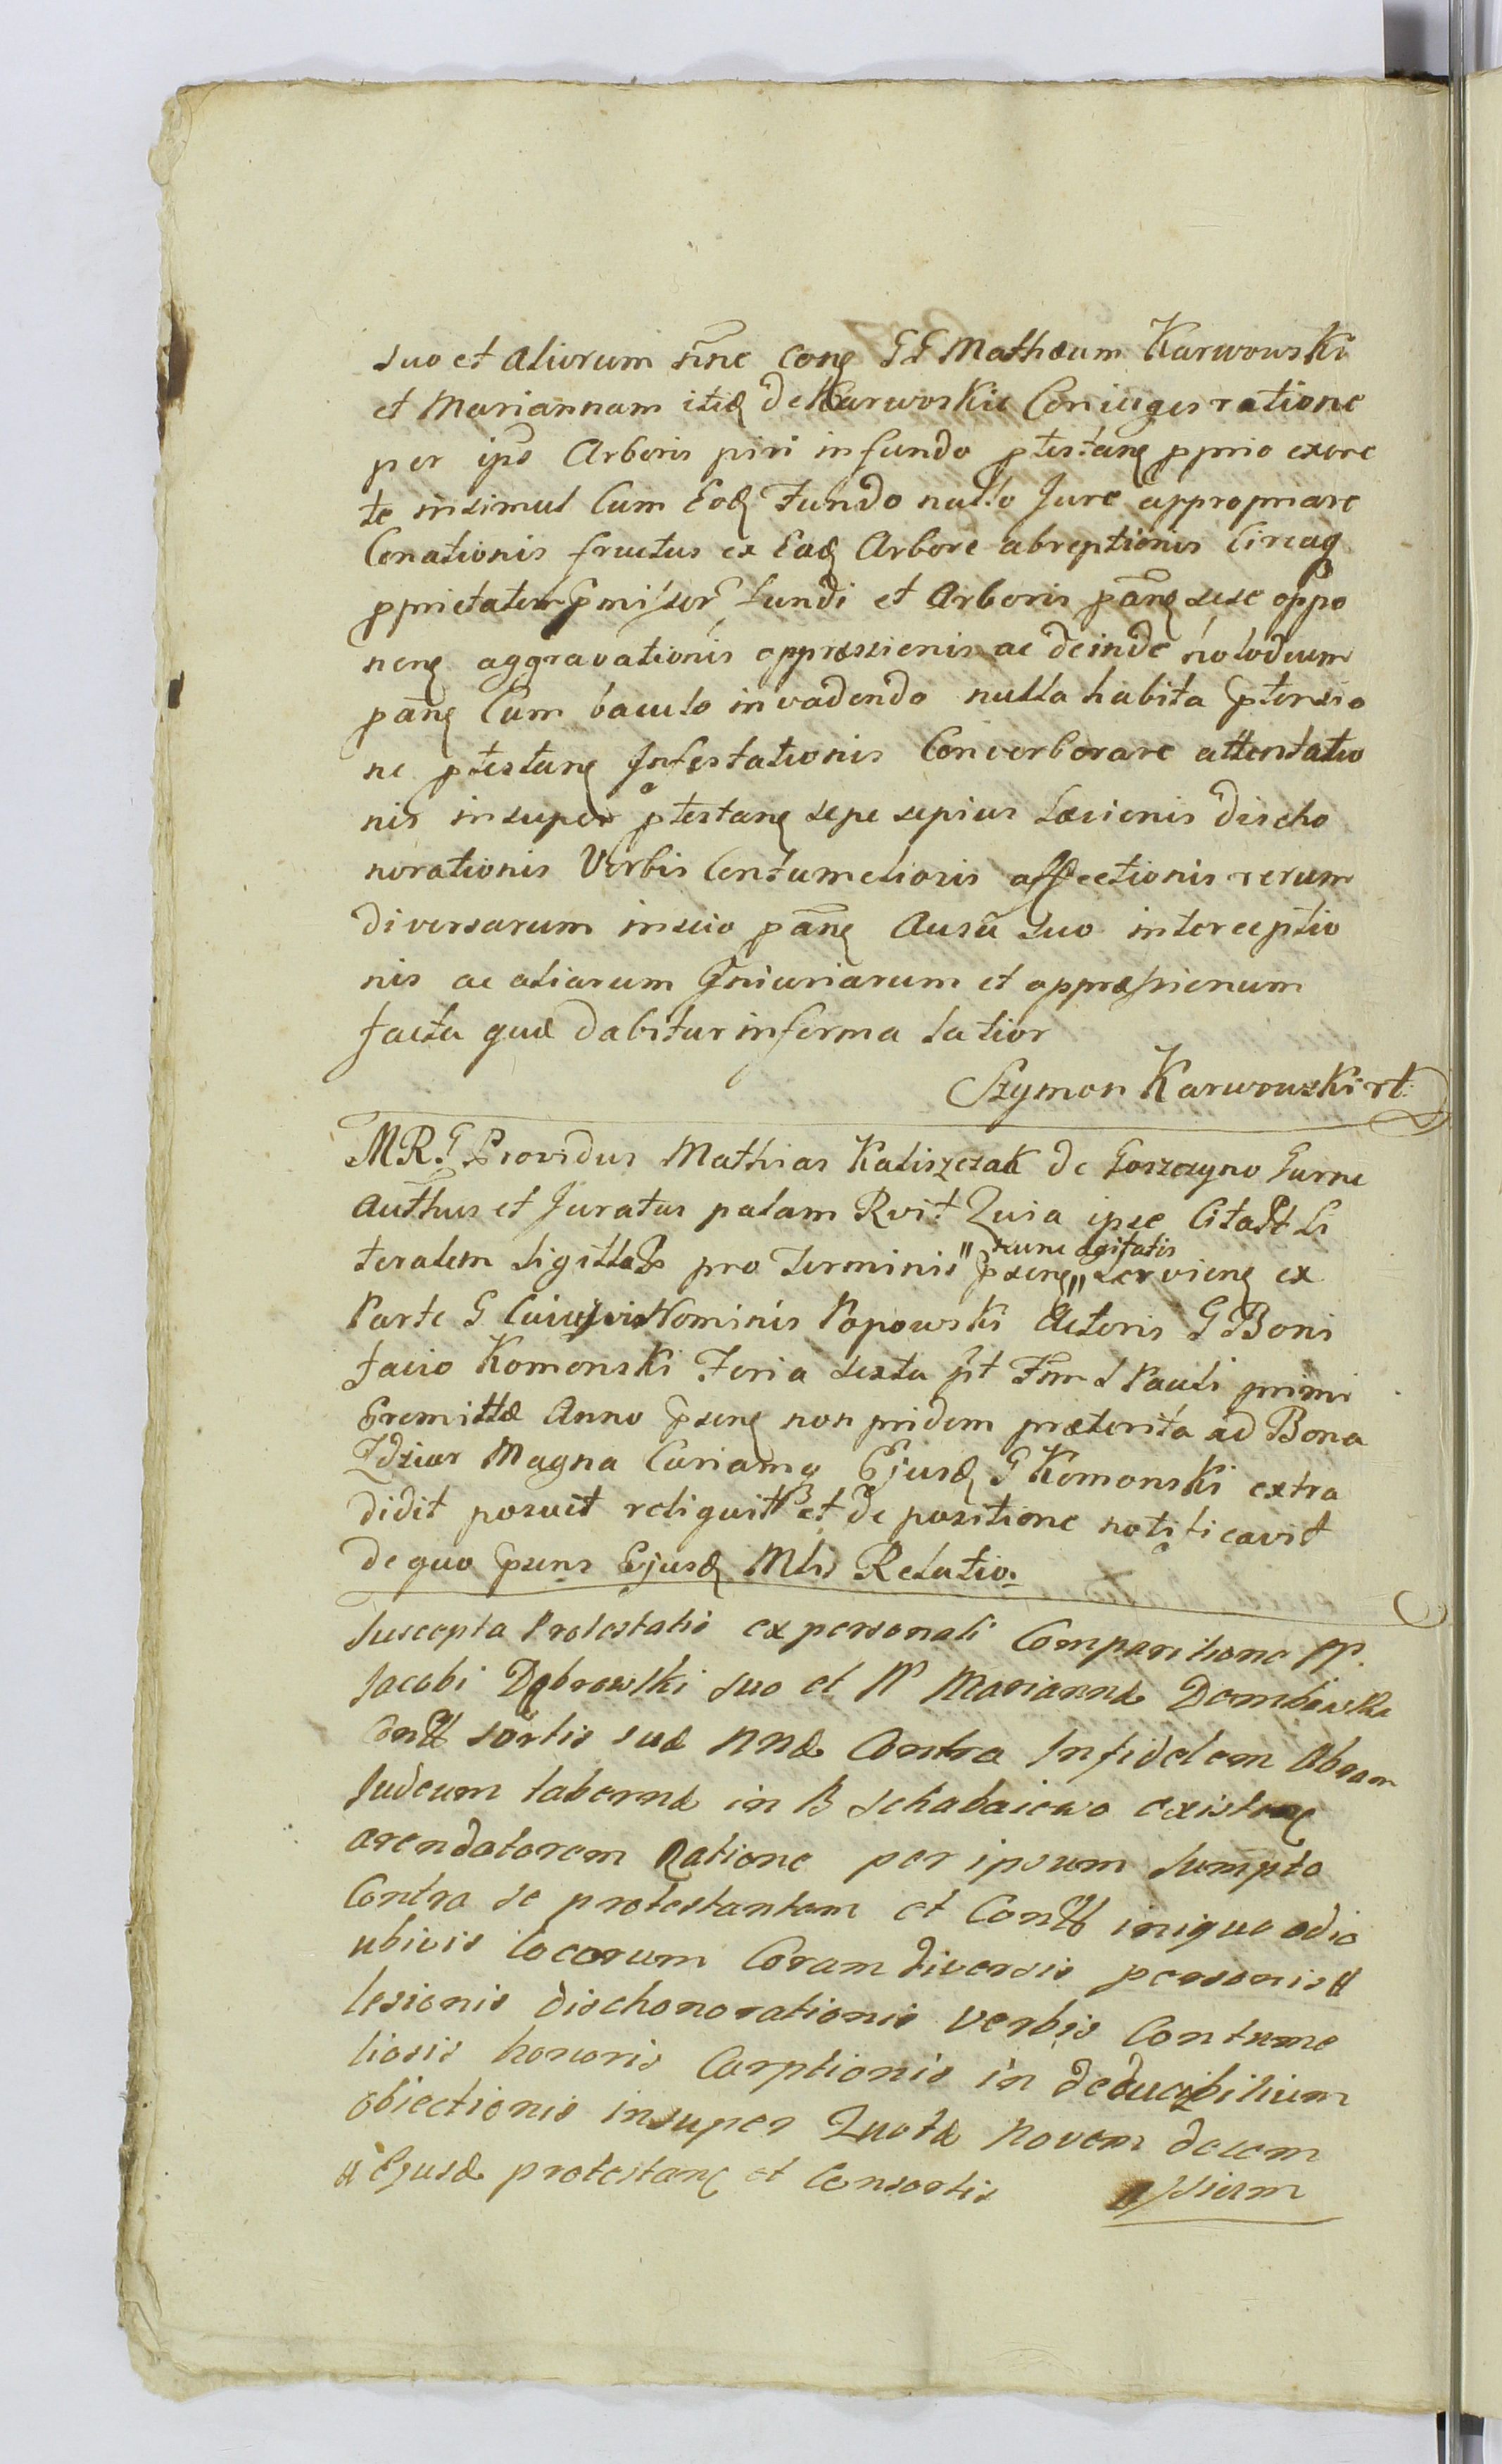 suo et aliorum nne cong GG Mathæum Karwowski
et Mariannam itid de Karwoskie Coniuges ratione
per ips Arboris piri in fundo ptestang pprio excre
te insimul Cum Eod Fundo nullo Jure appropriare
Conationis fructus ex Ead Arbore abreptionis Circaq
pprietatem pmissor Fundi et Arboris pang sese oppo
neng aggravationis oppressionis ac deinde
pang Cum baculo invadendo nulla habita ptensio
ne ptestang Infestationis Converborare attentatio
nis insuper ptestang sepe sepius Læsionis dischо
norationis Verbis Contumeliosis affectionis rerum
diversarum inscio pang Ausu suo interceptio
nis ac aliarum Iniuriarum et oppræssionum
facta quæ dabitur in forma latior
Szymon Karwowski rt
MRG Providus Mathias Kaliszczak de Goszczyno Gurne
Authus et Juratus palam Rvit Quia ipse Citatt Li
teralem sigillat pro Terminis " nunc agitatis
pseng " servieng ex
Parte G Cuiusvis Nominis Popowski Actoris G Boni
facio Komonski Feria sexta pt Fm S Pauli primi
Eremittæ Anno pseng non pridem præterita ad Bona
Zdziar Magna Curiamq Ejusd G Komonski extra
didit posuit reliquit et de positione notificavit
de quo psens Ejusd Mlis Relatio.
Suscepta Protestatio ex personali Comparitione N.
Jacobi Dąbrowski suo et N Mariannæ Dombrowska
Contt sortis suæ nnæ Contra Infidelem Abram
Judeum tabernæ in B Schabaiewo existeng
arendatorem Ratione per ipsum sumpto
Contra se protestantem et Contt iniquo odio
ubivis locorum Coram diversis personis
lesionis dischonorationis verbis Contume
liosis honoris Carptionis in deducibilium
obiectionis insuper Quotæ novem decem
a Ejusd protestang et Consortis assium